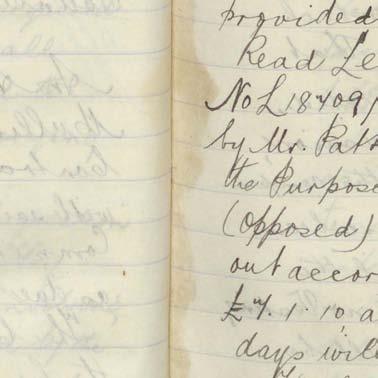 provided
Read Le
No L 18409/
by Mr. Patk
the Purpose
(opposed)
out accor
£7.1.10 a
days will